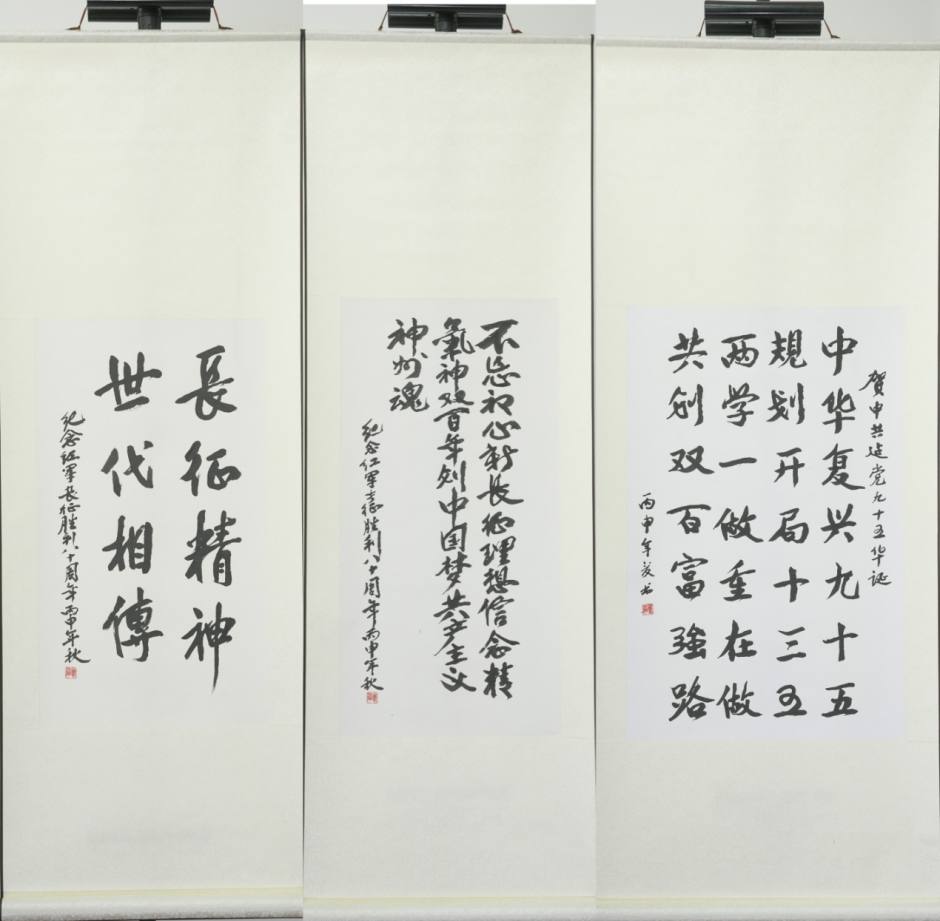 長征精神
世代相傳
纪念红军長征胜利八十周年丙申年秋
不忘初心新長征理想信念精
氣神双百年创中国梦共产主义
神州魂
纪念红军长征胜利八十周年丙申年秋
贺中共建党九十五华诞
中华复兴九十五
規划开局十三五
两学一做重在做
共创双百富強路
丙申年夏书